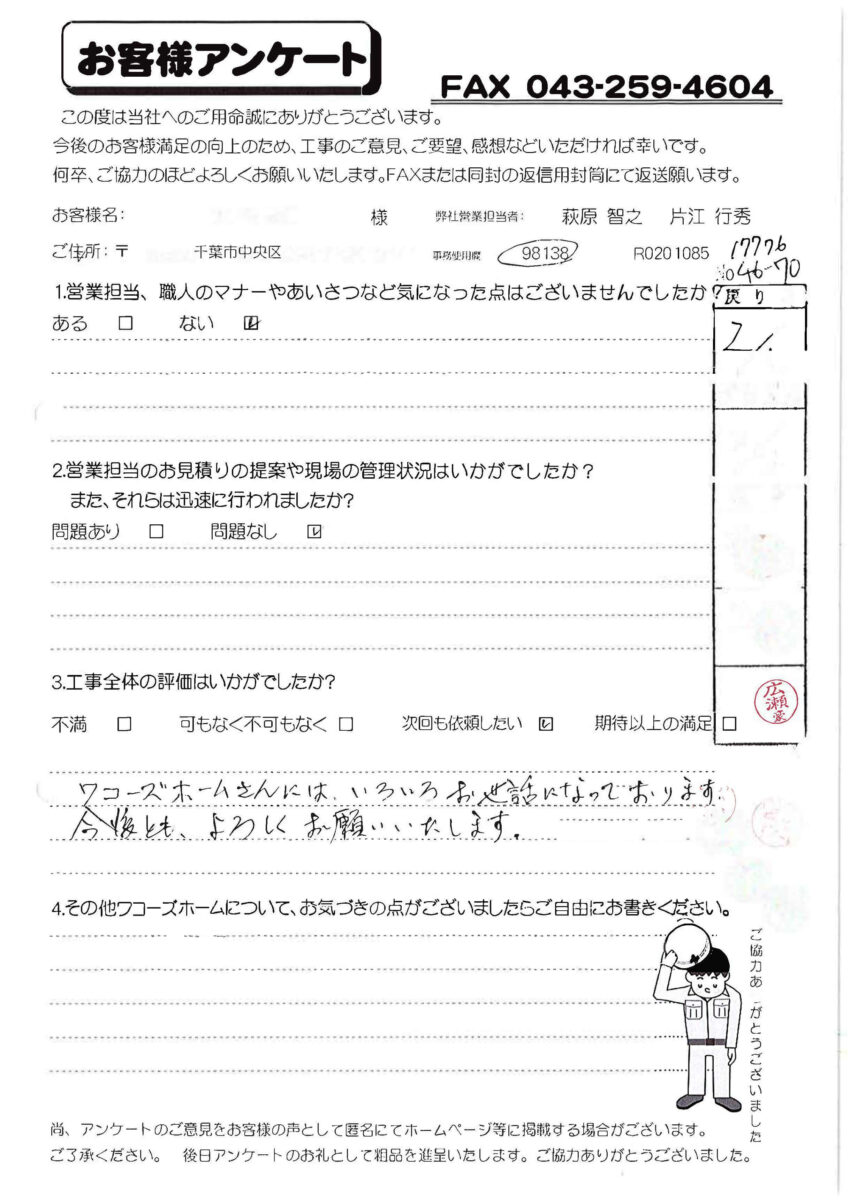 お客様アンケート
FAX 043-259-4604
この度は当社へのご用命誠にありがとうございます。
今後のお客様満足の向上のため、工事のご意見、ご要望、感想などいただければ幸いです。
何卒、ご協力のほどよろしくお願いいたします。FAXまたは同封の返信用封筒にて返送願います。
お客様名: 様 弊社営業担当者: 萩原 智之 片江 行秀
ご住所:〒 千葉市中央区 事務使用欄 98138 R0201085 17776
046-70
1.営業担当、職人のマナーやあいさつなど気になった点はございませんでしたか?
戻り
ある □ ない ☑
2/.
2.営業担当のお見積りの提案や現場の管理状況はいかがでしたか?
また、それらは迅速に行われましたか?
問題あり □ 問題なし ☑
3.工事全体の評価はいかがでしたか?
不満 □ 可もなく不可もなく □ 次回も依頼したい ☑ 期待以上の満足 □
広瀬
ワコーズホームさんには、いろいろお世話になっております。
今後とも、よろしくお願いいたします。
4.その他ワコーズホームについて、お気づきの点がございましたらご自由にお書きください。
ご協力あ がとうございました
尚、アンケートのご意見をお客様の声として匿名にてホームページ等に掲載する場合がございます。
ご了承ください。 後日アンケートのお礼として粗品を進呈いたします。ご協力ありがとうございました。